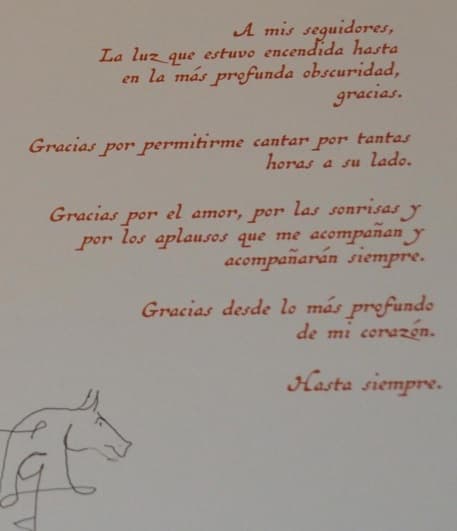 A mis seguidores,
La luz que estuvo encendida hasta
en la más profunda obscuridad,
gracias.
Gracias por permitirme cantar por tantas
horas a su lado.
Gracias por el amor, por las sonrisas y
por los aplausos que me acompañan y
acompañarán siempre.
Gracias desde lo más profundo
de mi corazón.
Hasta siempre.